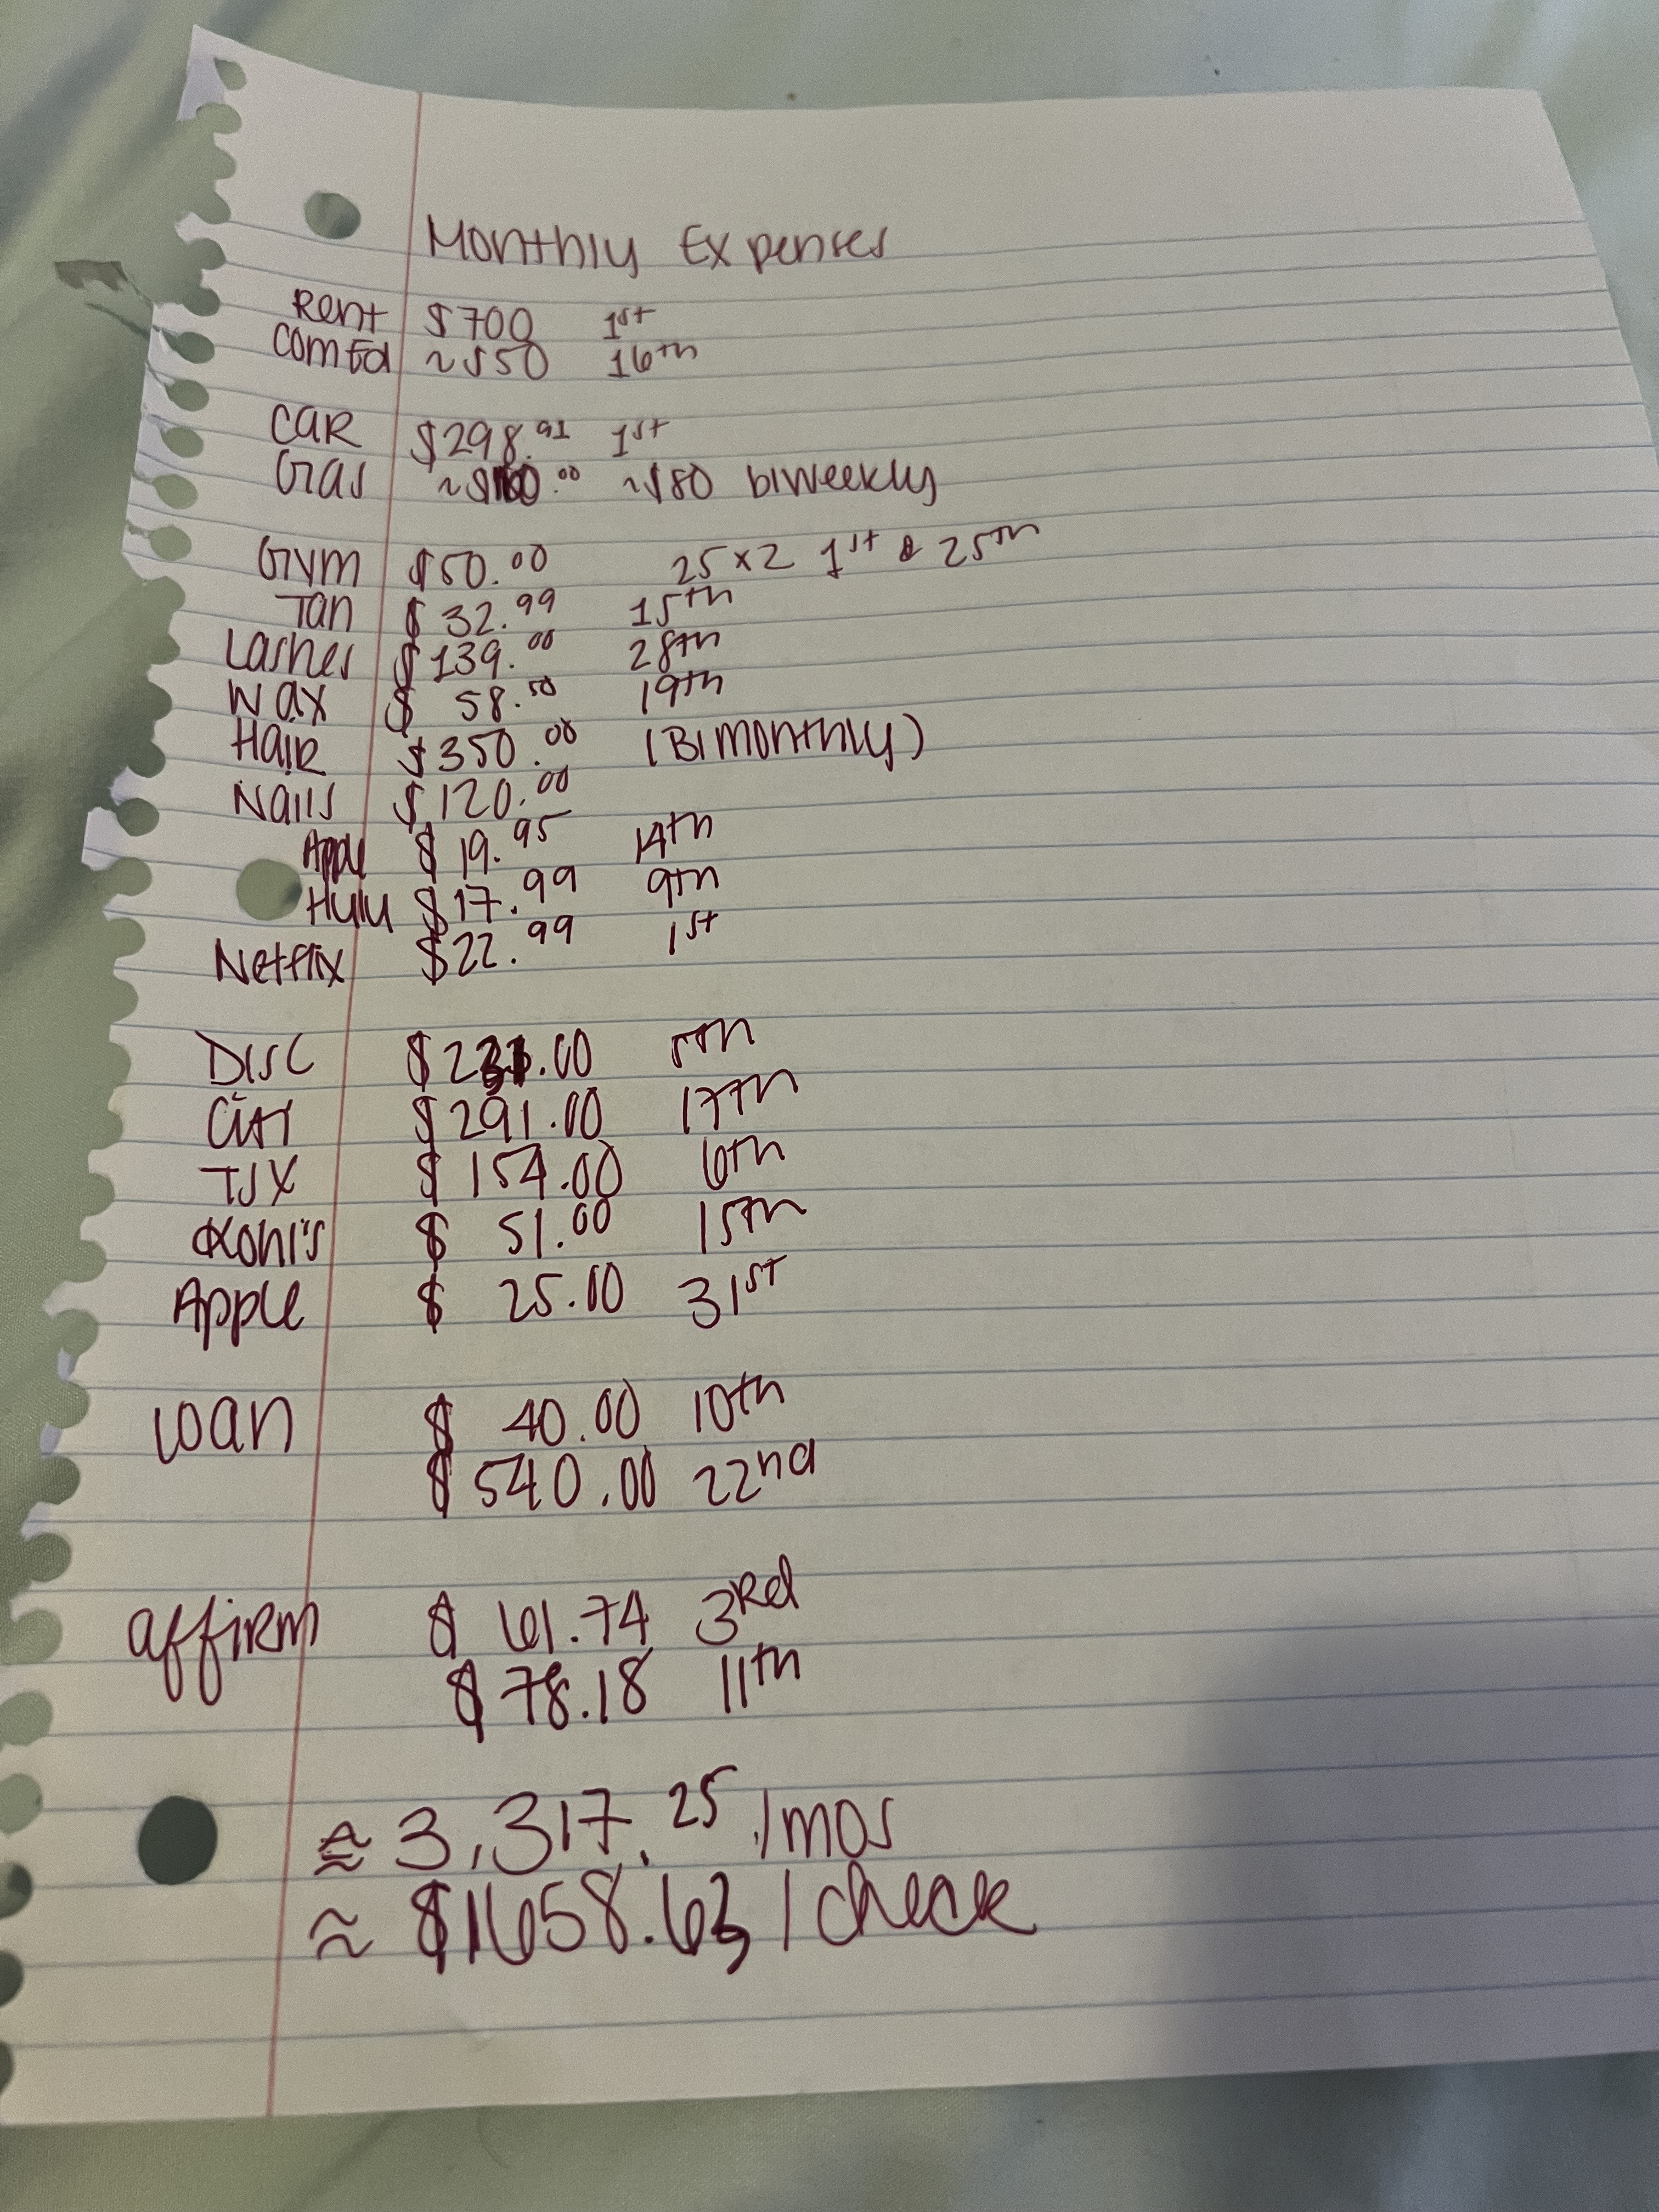 Monthly Expenses
Rent $700 1st
ComEd ~$50 16th
Car $298.91 1st
Gas ~$160.00 ~$80 biweekly
Gym $50.00 25x2 1st & 25th
Tan $32.99 15th
Lashes $139.00 28th
Wax $58.50 19th
Hair $350.00 (Bimonthly)
Nails $120.00
Apple $19.95 14th
Hulu $17.99 9th
Netflix $22.99 1st
Disc $231.00 5th
Citi $291.00 17th
TJX $154.00 6th
Kohl's $51.00 15th
Apple $25.00 31st
Loan $40.00 10th
$540.00 22nd
affirm $61.74 3Rd
$78.18 11th
≈ 3,317.25 /mos
≈ $1658.63 / check